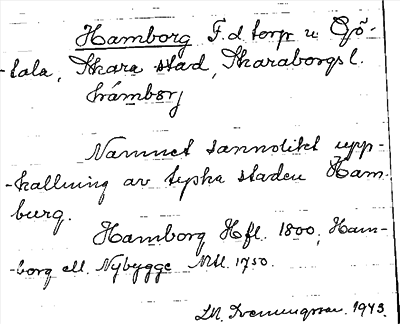 Hamborg F.d torp u Gö-
tala, Skara stad, Skaraborgs l.
hámbørj
Namnet sannolikt upp-
kallning av tyska staden Ham
burg.
Hamborg Hfl. 1800; Ham-
borg ell. Nybygge Mtl. 1750.
1943.